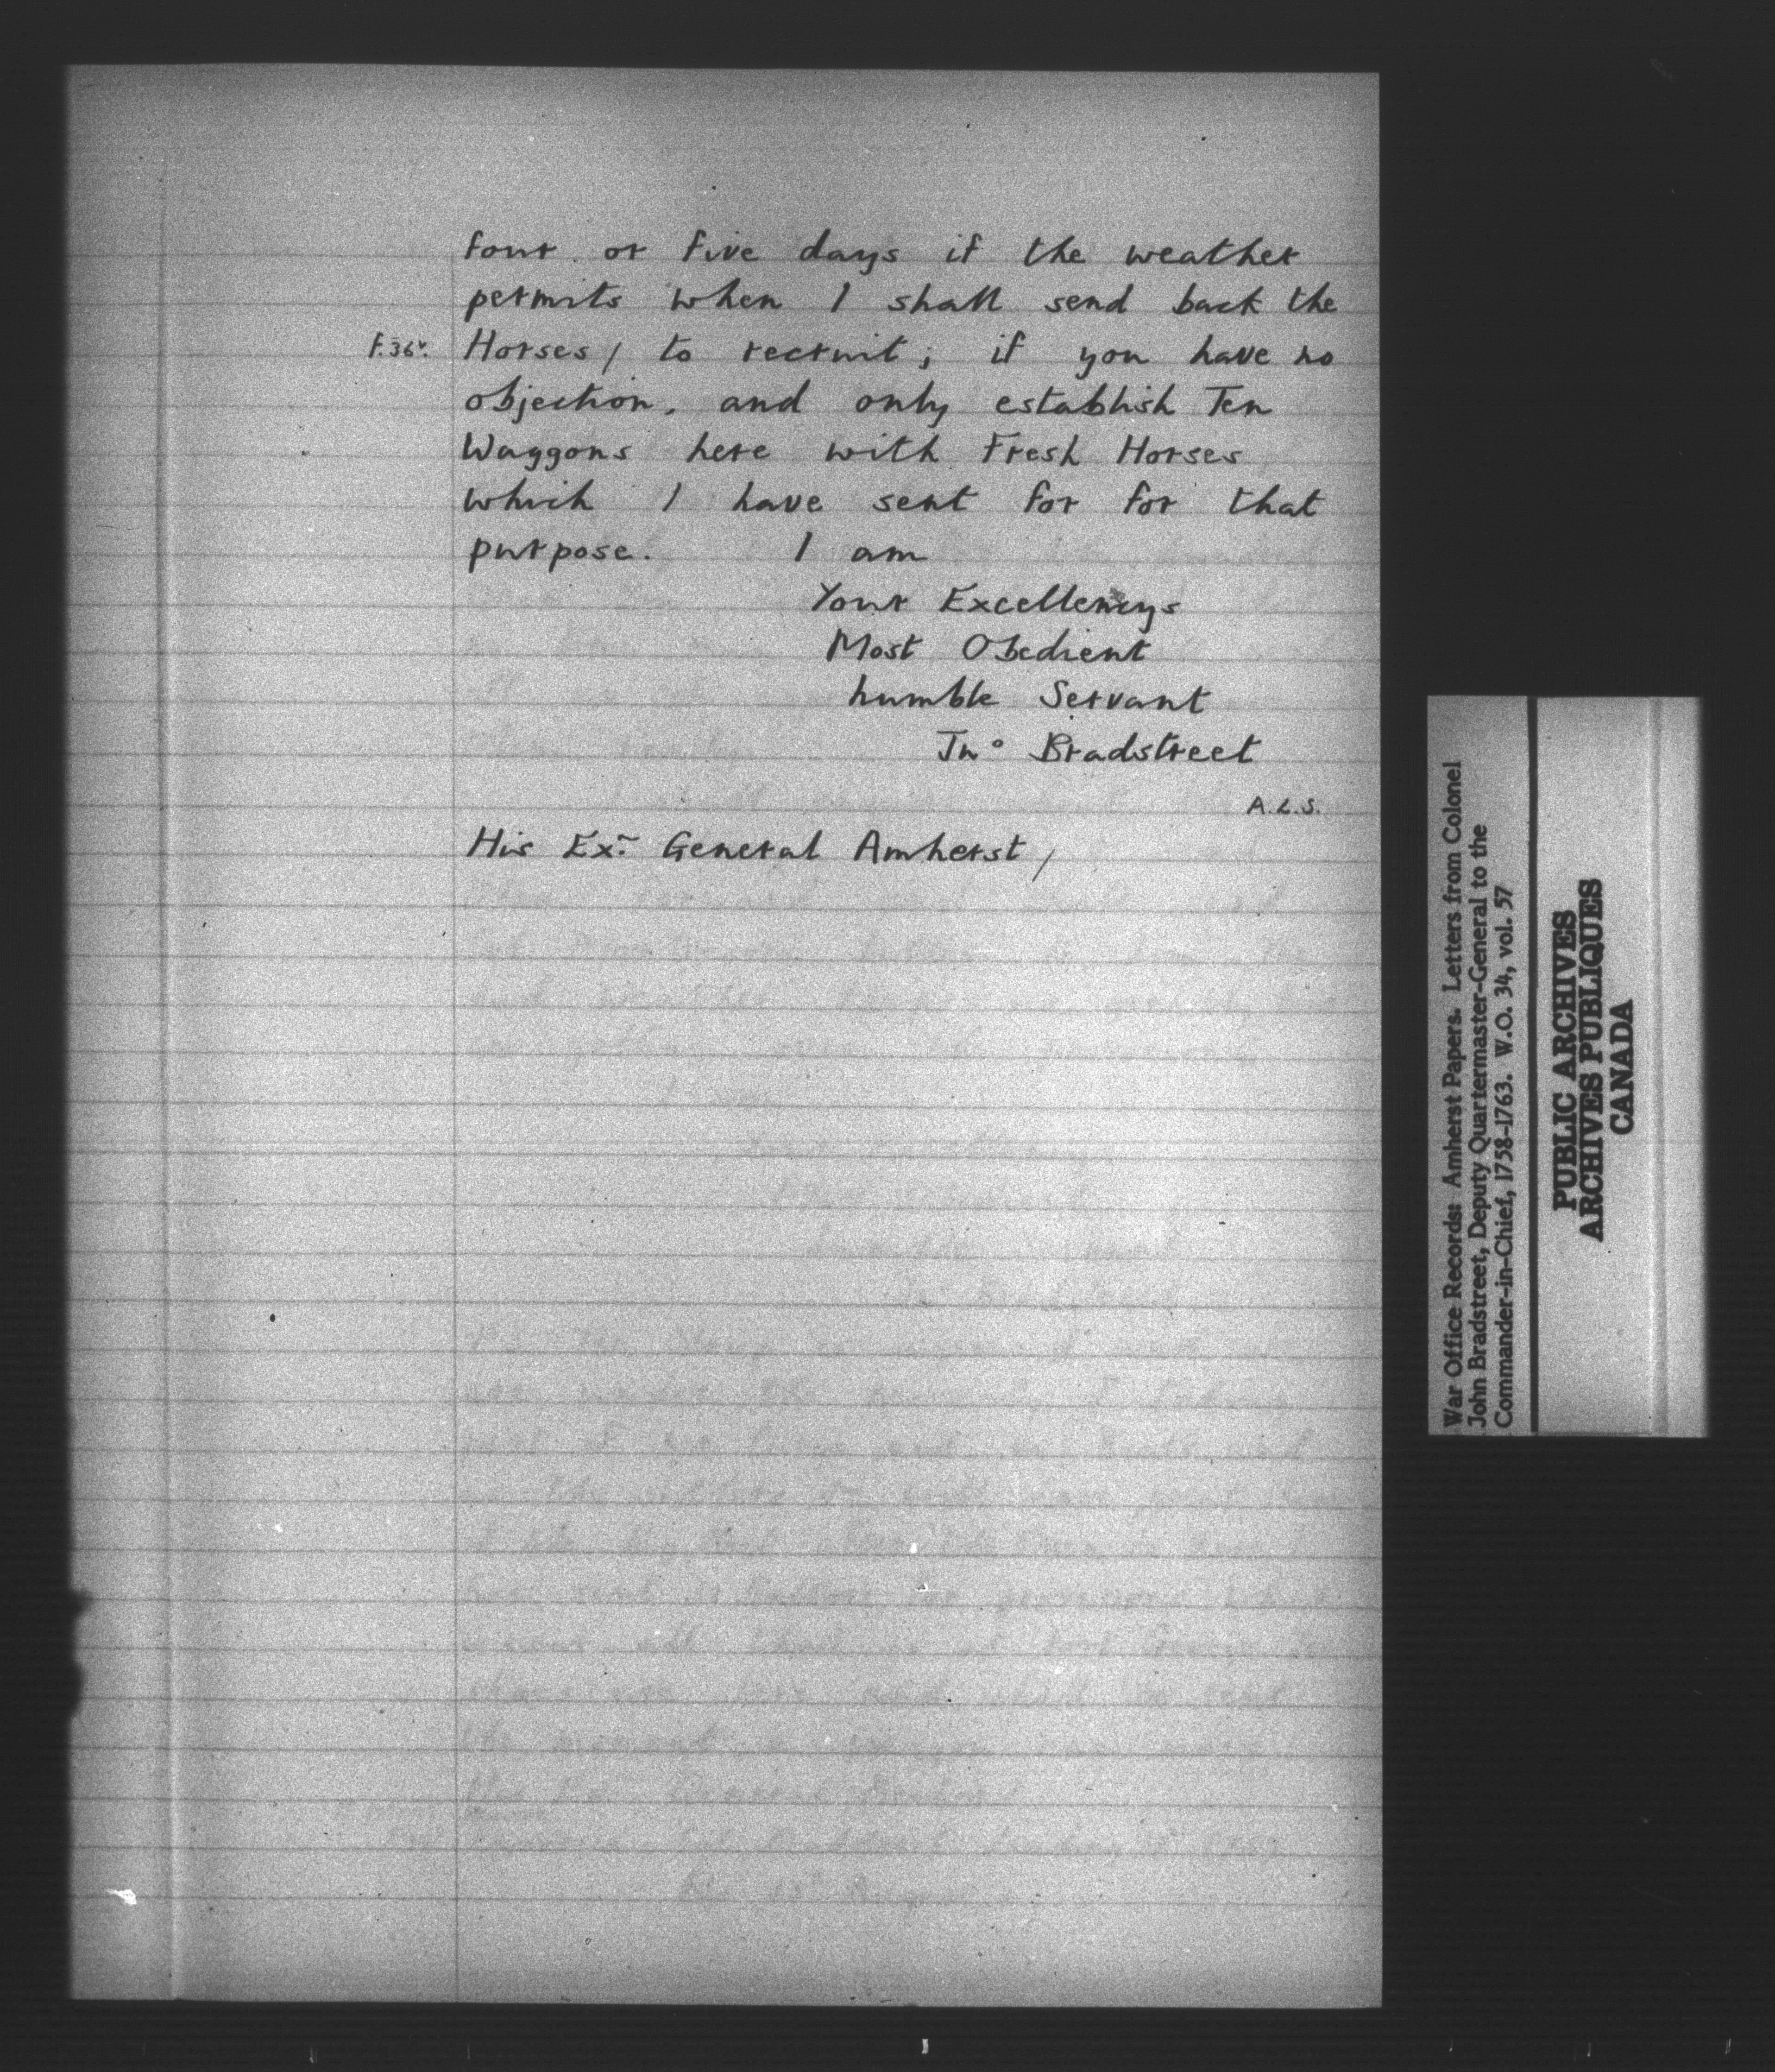 four or five days if the weather
permits when I shall send back the
f.36v. Horses / to recruit; if you have no
objection, and only establish Ten
Waggons here with Fresh Horses
which I have sent for for that
purpose. I am
Your Excellencys
Most Obedient
humble Servant
Jno Bradstreet
A.L.S.
His Exy General Amherst /
War Office Records: Amherst Papers. Letters from Colonel
John Bradstreet, Deputy Quartermaster-General to the
Commander-in-Chief, 1758-1763. W.O. 34, vol. 57
PUBLIC ARCHIVES
ARCHIVES PUBLIQUES
CANADA